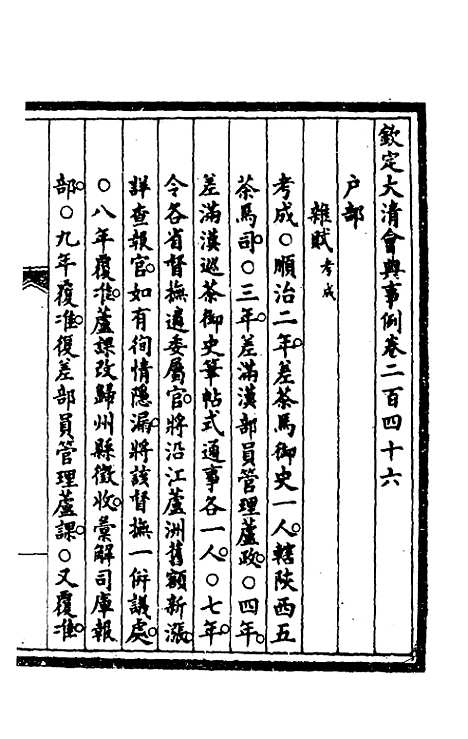 欽定大清會典事例卷二百四十六
户部
雜賦考成
考成○順治二年。差茶馬御史一人。轄陝西五
茶馬司。○三年。差滿漢部員管理蘆政。○四年。
差滿漢巡茶御史筆帖式通事各一人。○七年。
令各省督撫遴委屬官。將沿江蘆洲舊額新漲。
詳查報官。如有徇情隱漏。將該督撫一併議處。
○八年覆准。蘆課改歸州縣徵收。彙解司庫報
部。○九年覆准。復差部員管理蘆課。○又覆准。